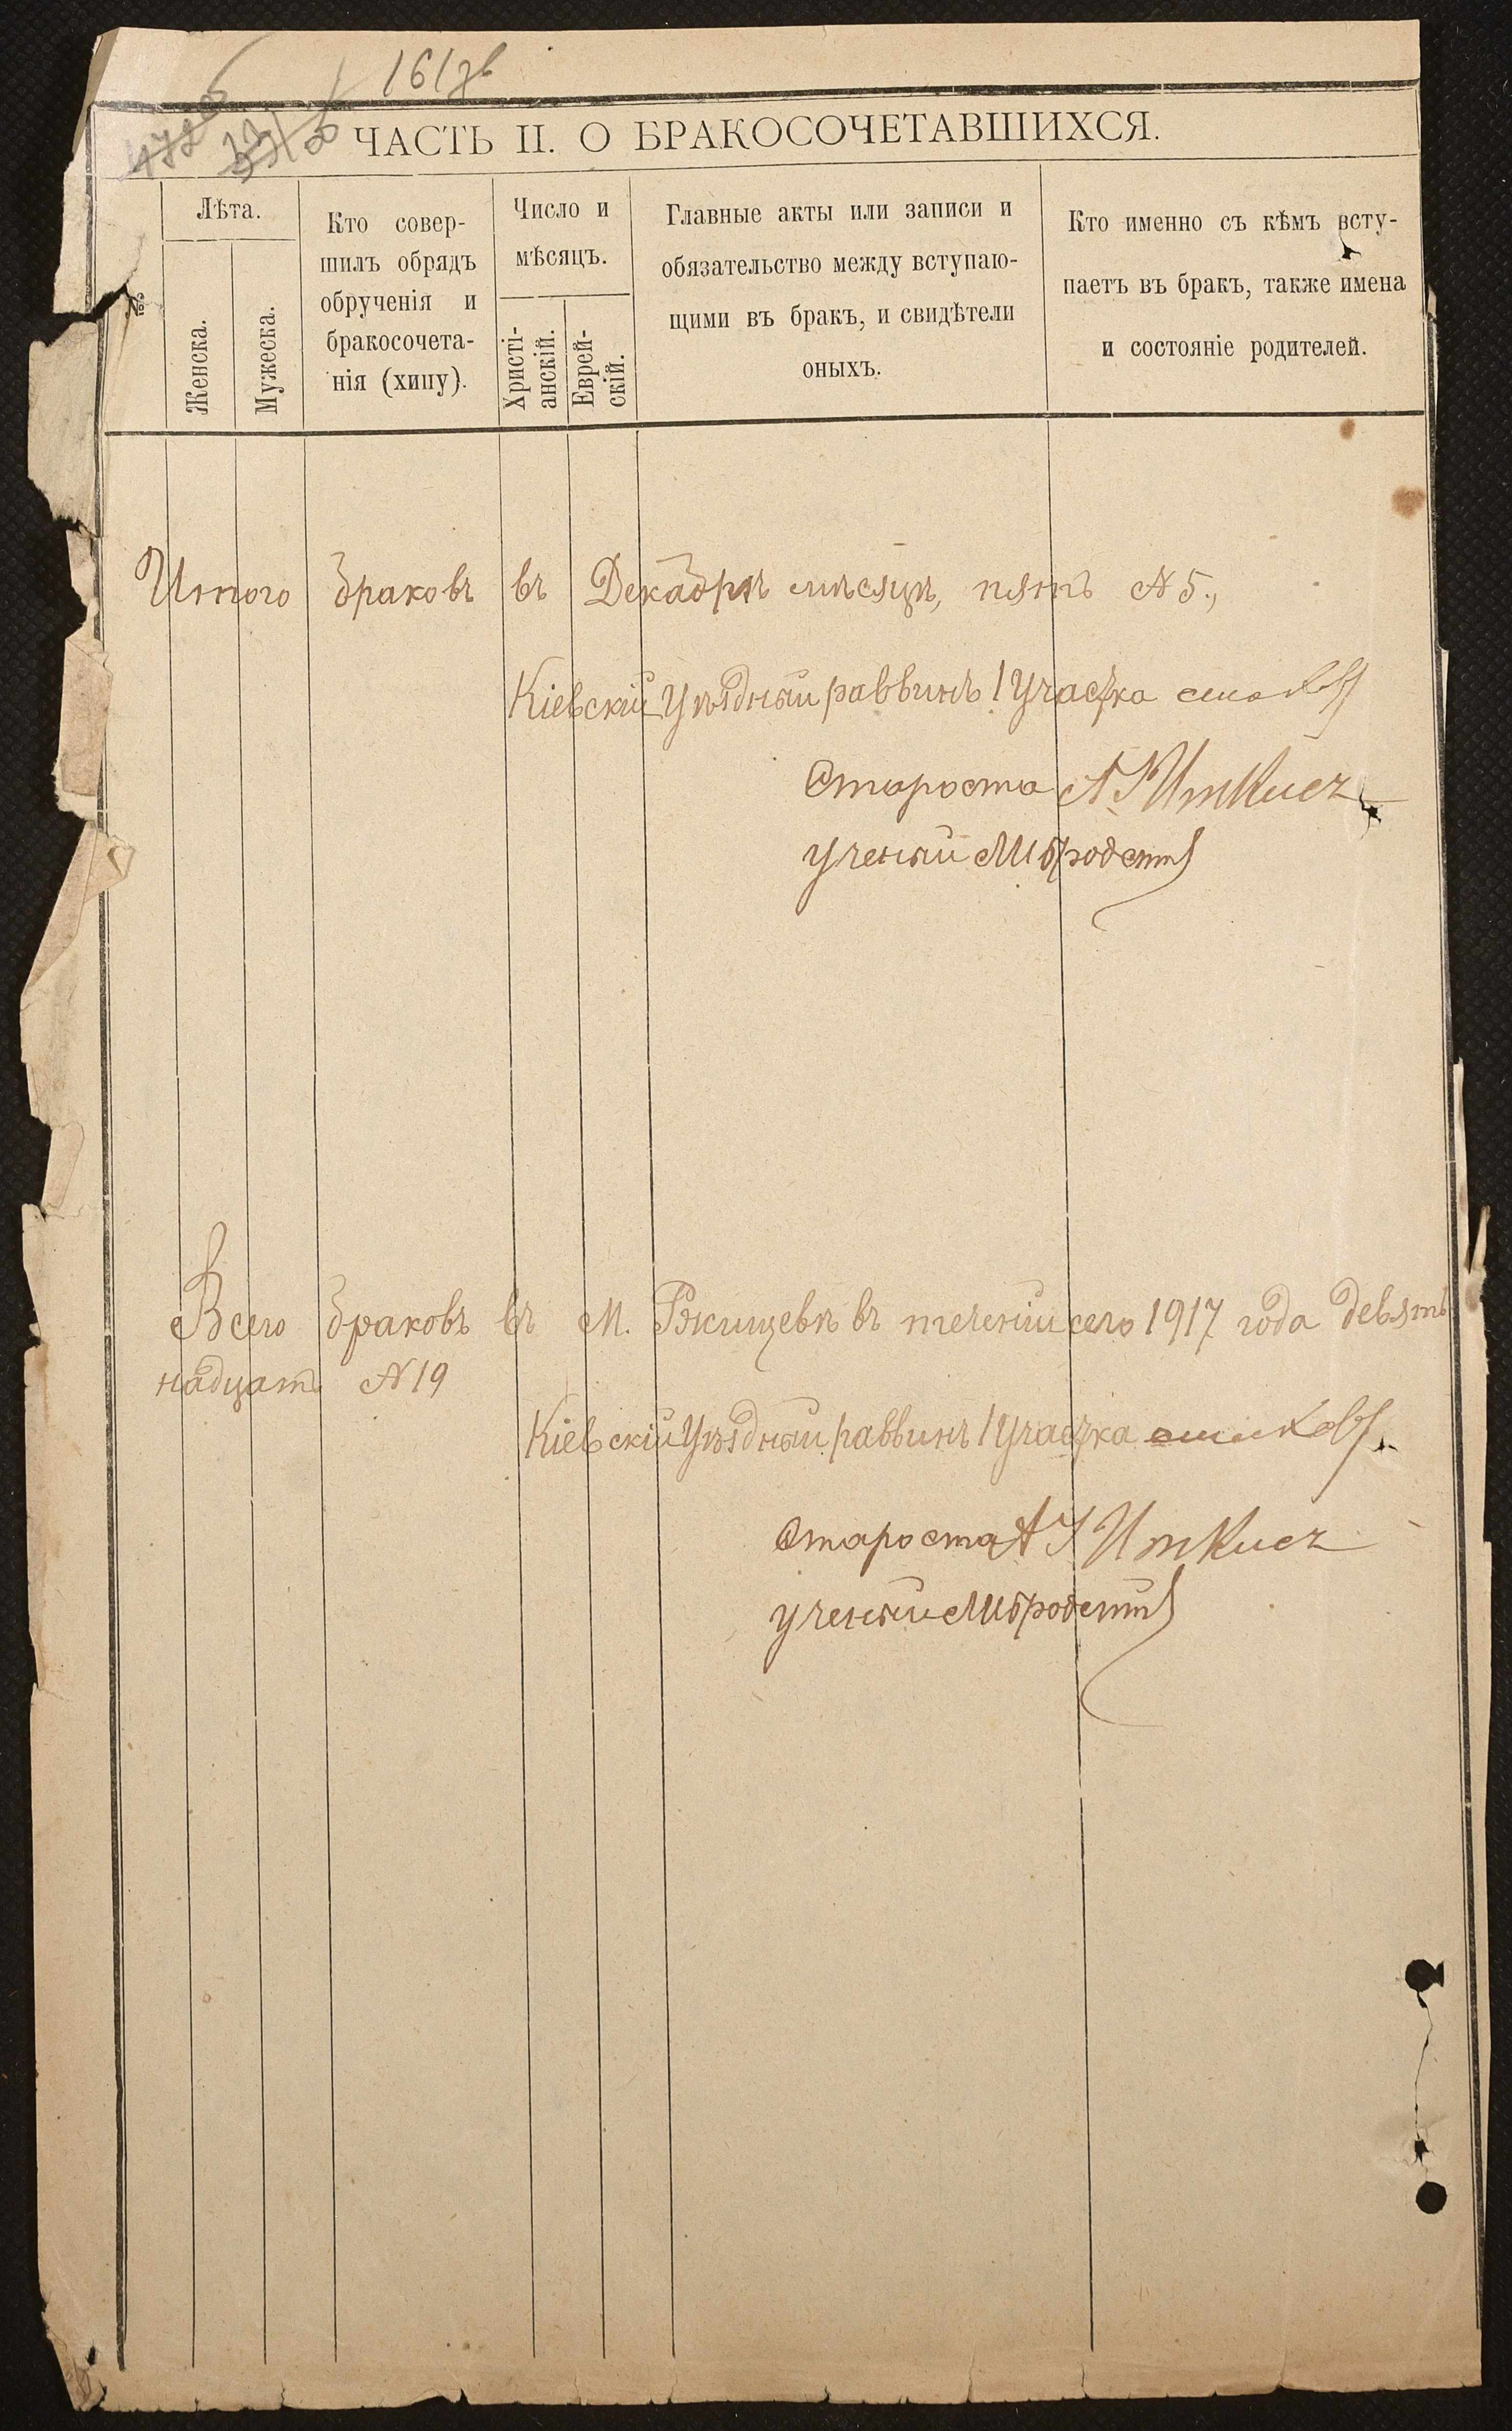 161 зв
ЧАСТЬ II. О БРАКОСОЧЕТАВШИХСЯ.
№
Лѣта.
Женска.
Мужеска.
Кто совер-
шилъ обрядъ
обрученія и
бракосочета-
нія (хипу).
Число и
мѣсяцъ.
Христі-
анскій.
Еврей-
скій.
Главные акты или записи и
обязательство между вступаю-
щими въ бракъ, и свидѣтели
оныхъ.
Кто именно съ кѣмъ всту-
паетъ въ бракъ, также имена
и состояніе родителей.
Итого браковъ въ Декабрѣ мѣсяцѣ, пять № 5.,
Кіевскій Уѣздный раввинъ 1 Участка
Староста А Иткисъ
ученый М Бродскій
Всего браковъ въ М. Ржищевѣ въ теченіи сего 1917 года девят
надцать № 19
Кіевскій Уѣздный раввинъ 1 Участка
Староста А Иткисъ
ученый М Бродскій